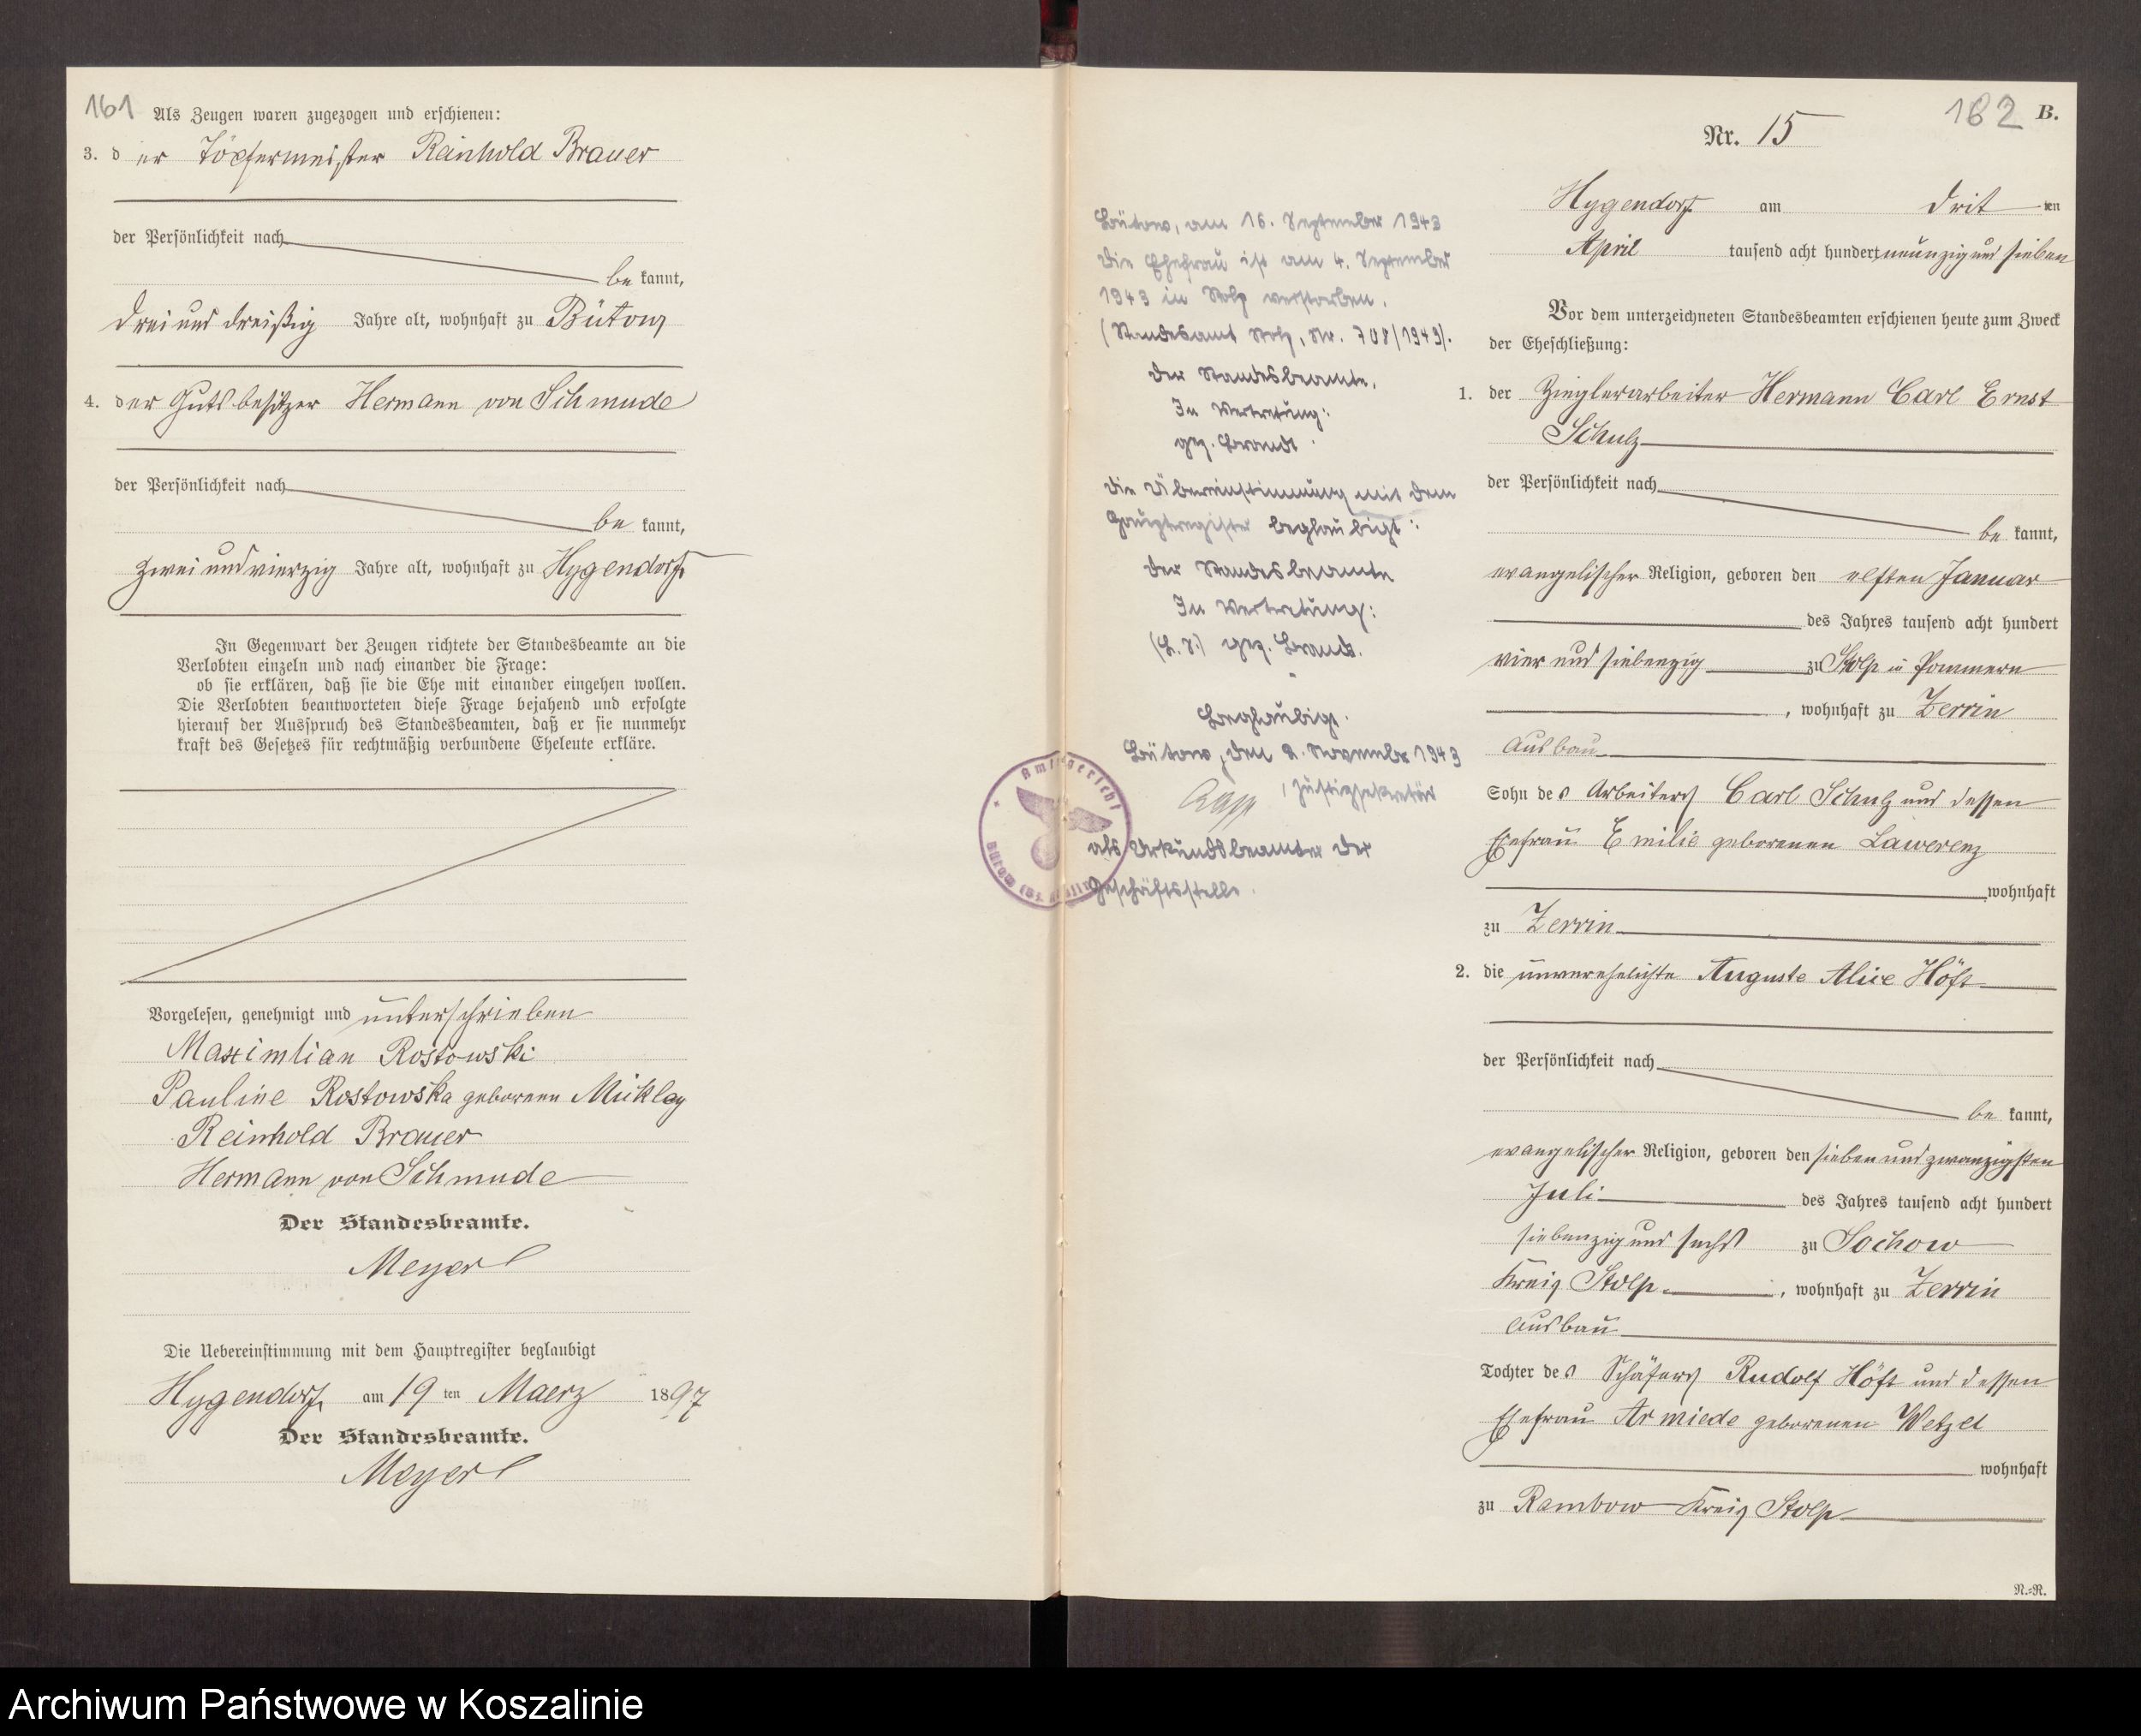 161
Als Zeugen waren zugezogen und erschienen:
3. der Töpfermeister Reinhold Brauer
der Persönlichkeit nach
be kannt,
drei und dreißig Jahre alt, wohnhaft zu Bütow
4. der Gutsbesitzer Hermann von Schmude
der Persönlichkeit nach
be kannt,
zwei und vierzig Jahre alt, wohnhaft zu Hygendorf
In Gegenwart der Zeugen richtete der Standesbeamte an die
Verlobten einzeln und nach einander die Frage:
ob sie erklären, daß sie die Ehe mit einander eingehen wollen.
Die Verlobten beantworteten diese Frage bejahend und erfolgte
hierauf der Ausspruch des Standesbeamten, daß er sie nunmehr
kraft des Gesetzes für rechtmäßig verbundene Eheleute erkläre.
Vorgelesen, genehmigt und unterschrieben
Maximlian Rostowski
Pauline Rostowska geborenen Mickley
Reinhold Brauer
Hermann von Schmude
Der Standesbeamte.
Meyer
Die Uebereinstimmung mit dem Hauptregister beglaubigt
Hygendorf, am 19 ten Maerz 1897
Der Standesbeamte.
Meyer
162 B.
Nr. 15
Hygendorf am drit ten
April tausend acht hundert neunzig und sieben
Vor dem unterzeichneten Standesbeamten erschienen heute zum Zweck
der Eheschließung:
1. der Zieglerarbeiter Hermann Carl Ernst
Schulz
der Persönlichkeit nach
be kannt,
evangelischer Religion, geboren den elften Januar
des Jahres tausend acht hundert
vier und siebenzig zu Stolp in Pommern
, wohnhaft zu Zerrin
Ausbau
Sohn des Arbeiters Carl Schulz und dessen
Ehefrau Emilie geborenen Lawerenz
wohnhaft
zu Zerrin
2. die unverehelichte Auguste Alice Höft
der Persönlichkeit nach
be kannt,
evangelischer Religion, geboren den sieben und zwanzigsten
Juli des Jahres tausend acht hundert
siebenzig und sechs zu Sochow
Kreis Stolp, wohnhaft zu Zerrin
Ausbau
Tochter des Schäfers Rudolf Höft und dessen
Ehefrau Armiede geborenen Wetzel
wohnhaft
zu Rambow Kreis Stolp
N.=N.
Bütow, am 16. September 1943
Die Ehefrau ist am 4. September
1943 in Stolp verstorben.
(Standesamt Stolp, Nr. 708/1943).
Der Standesbeamte.
In Vertretung:
gez. Brandt.
Die Übereinstimmung mit dem
Hauptregister beglaubigt:
Der Standesbeamte
In Vertretung:
(L.S.) gez. Brandt.
Beglaubigt.
Bütow, den 2. November 1943
, Justizsekretär
als Urkundsbeamter der
Geschäftsstelle.
Amtsgericht
Bütow (Bz. Köslin)
Archiwum Państwowe w Koszalinie